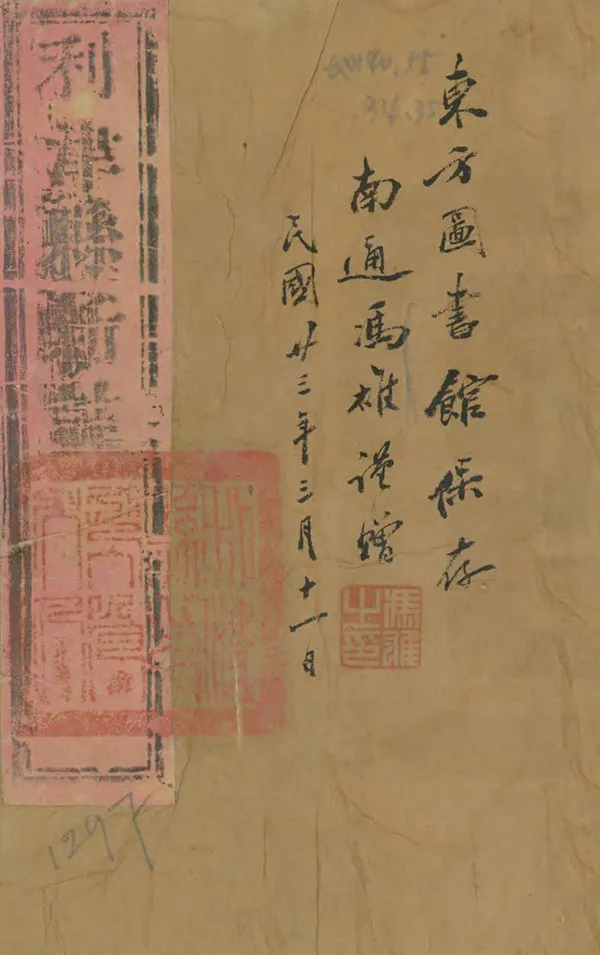 東方圖書館保存
南通馮雄謹贈
馮雄之印
民國廿三年三月十一日
利津縣新誌
1297